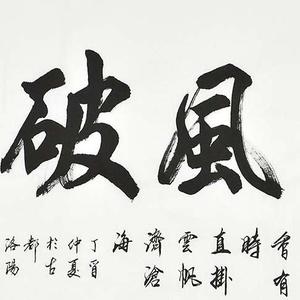 風破
會有
時
直掛
雲帆
濟滄
海
丁酉
仲夏
於古
都
洛陽